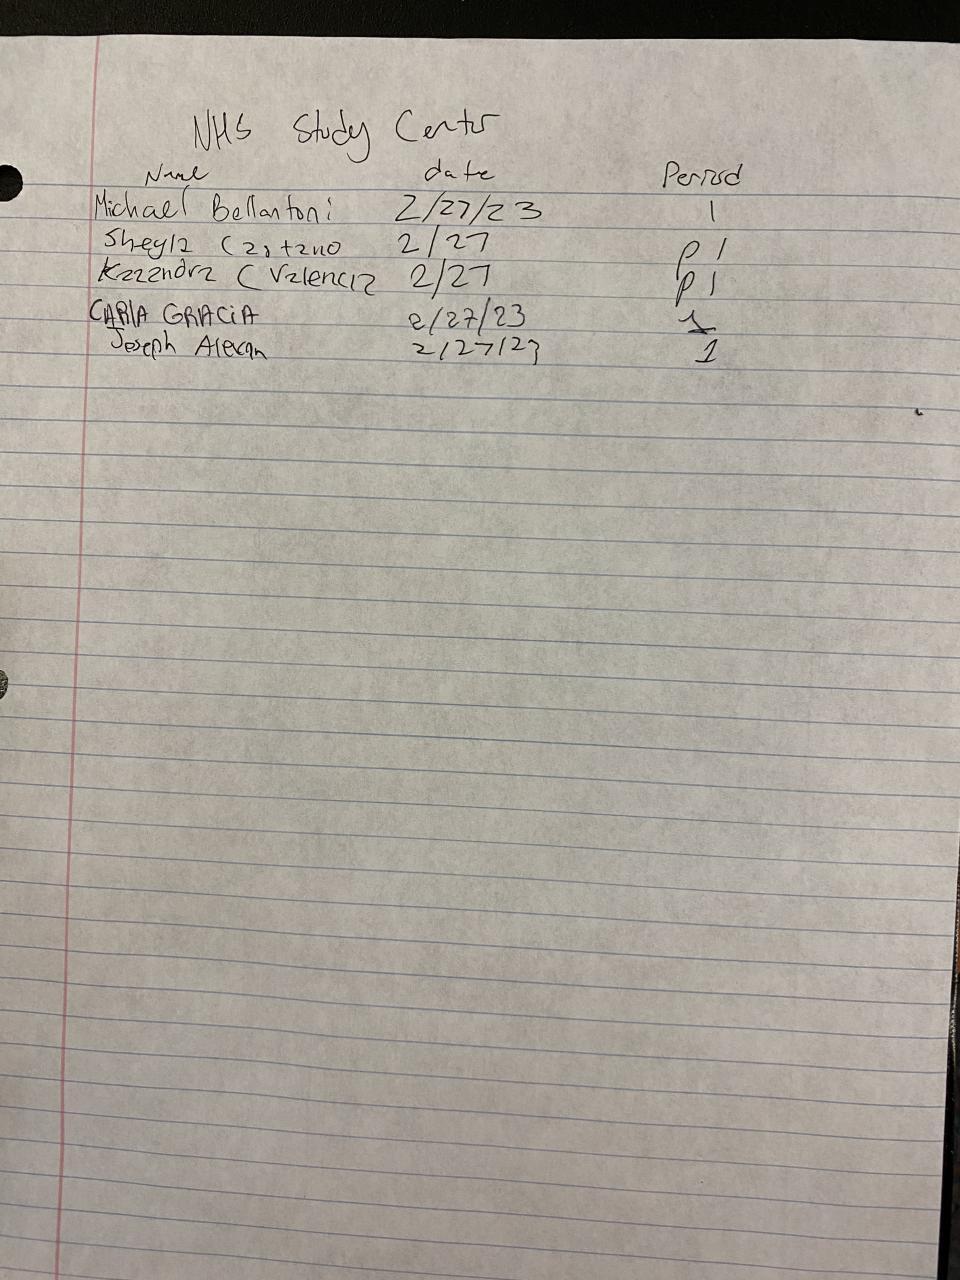 NHS Study Center
Name date Period
Michael Bellantoni 2/27/23 1
Sheyla Castano 2/27 p 1
Kazandra C Valencia 2/27 p 1
CARlA GRACiA 2/27/23 1
Joseph 2/27/23 1